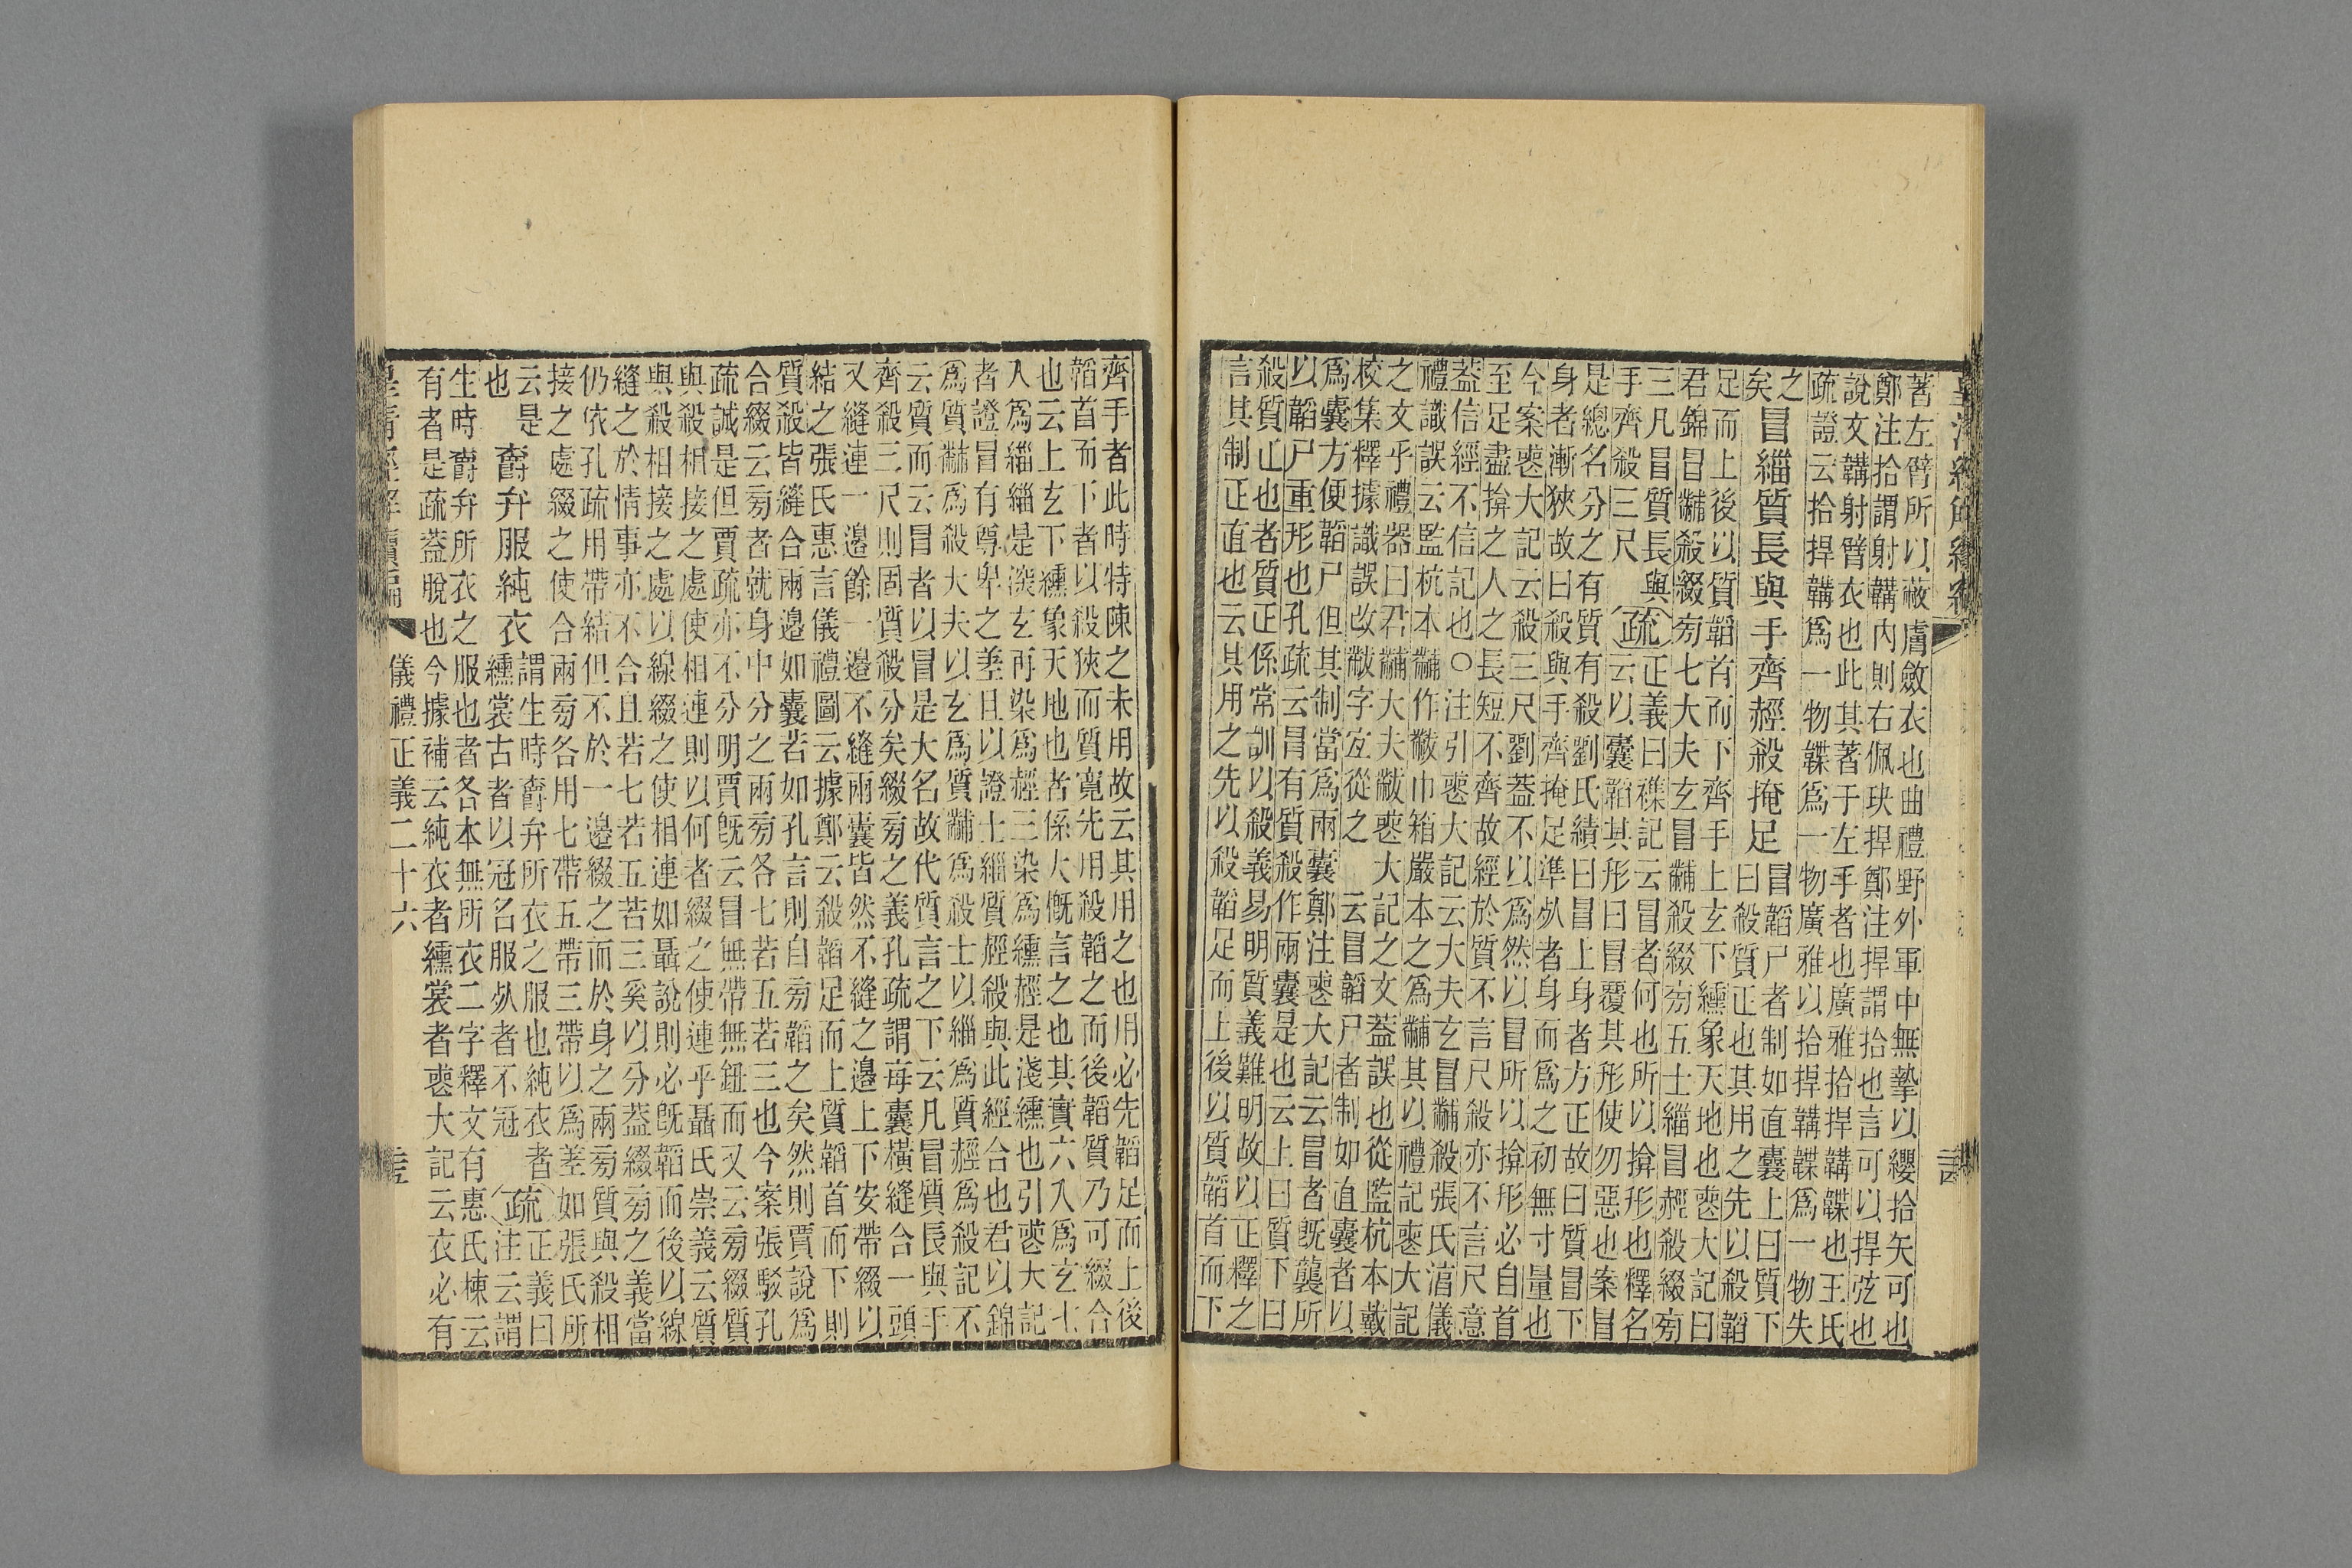 著左臂所以蔽膚斂衣也曲禮野外軍中無摯以纓拾矢可也
鄭注拾謂射韝內則右佩玦捍鄭注捍謂拾也言可以捍弦也
說文韝射臂衣也此其著于左手者也廣雅拾捍韝韘也王氏
疏證云拾捍韝爲一物韘爲一物廣雅以拾捍韝韘爲一物失
之
矣
冒緇質長與手齊經殺掩足
冒韜尸者制如直囊上曰質下
曰殺質正也其用之先以殺韜
足而上後以質韜首而下齊手上玄下纁象天地也喪大記曰
君錦冒黼殺綴旁七大夫玄冒黼殺綴旁五士緇冒赬殺綴旁
三凡冒質長與
手齊殺三尺
疏
正義曰襍記云冒者何也所以揜形也釋名
云以囊韜其形曰冒覆其形使勿惡也案冒
是總名分之有質有殺劉氏績曰冒上身者方正故曰質冒下
身者漸狹故曰殺與手齊掩足準死者身而爲之初無寸量也
今案喪大記云殺三尺劉蓋不以爲然以冒所以揜形必自首
至足盡揜之人之長短不齊故經於質不言尺殺亦不言尺意
蓋信經不信記也○注引喪大記云大夫玄冒黼殺張氏淳儀
禮識誤云監杭本黼作黻巾箱嚴本之爲黼其以禮記喪大記
之文乎禮器曰君黼大夫黻喪大記之文蓋誤也從監杭本戴
校集釋據識誤改黻字宜從之　云冒韜尸者制如直囊者以
爲囊方便韜尸但其制當爲兩囊鄭注喪大記云冒者旣襲所
以韜尸重形也孔疏云冒有質殺作兩囊是也云上曰質下曰
殺質正也者質正係常訓以殺義易明質義難明故以正釋之
言其制正直也云其用之先以殺韜足而上後以質韜首而下
齊手者此時特陳之未用故云其用之也用必先韜足而上後
韜首而下者以殺狹而質寬先用殺韜之而後韜質乃可綴合
也云上玄下纁象天地也者係大慨言之也其實六入爲玄七
入爲緇緇是深玄再染爲赬三染爲纁赬是淺纁也引喪大記
者證冒有尊卑之差且以證士緇質赬殺與此經合也君以錦
爲質黼爲殺大夫以玄爲質黼爲殺士以緇爲質赬爲殺記不
云質而云冒者以冒是大名故代質言之下云凡冒質長與手
齊殺三尺則固質殺分矣綴旁之義孔疏謂每囊橫縫合一頭
又縫連一邊餘一邊不縫兩囊皆然不縫之邊上下安帶綴以
結之張氏惠言儀禮圖云據鄭云殺韜足而上質韜首而下則
質殺皆縫合兩邊如囊若如孔言則自旁韜之矣然則賈說爲
合綴云旁者就身中分之兩旁各七若五若三也今案張駁孔
疏誠是但賈疏亦不分明賈旣云冒無帶無鈕而又云旁綴質
與殺相接之處使相連則以何者綴之使連乎聶氏崇義云質
與殺相接之處以線綴之使相連如聶說則必旣韜而後以線
縫之於情事亦不合且若七若五若三奚以分蓋綴旁之義當
仍依孔疏用帶結但不於一邊綴之而於身之兩旁質與殺相
接之處綴之使合兩旁各用七帶五帶三帶以爲差如張氏所
云是
也
爵弁服純衣
謂生時爵弁所衣之服也純衣者
纁裳古者以冠名服死者不冠
疏
正義曰
注云謂
生時爵弁所衣之服也者各本無所衣二字釋文有惠氏棟云
有者是疏蓋脫也今據補云純衣者纁裳者喪大記云衣必有
皇清經解續編　儀禮正義二十六